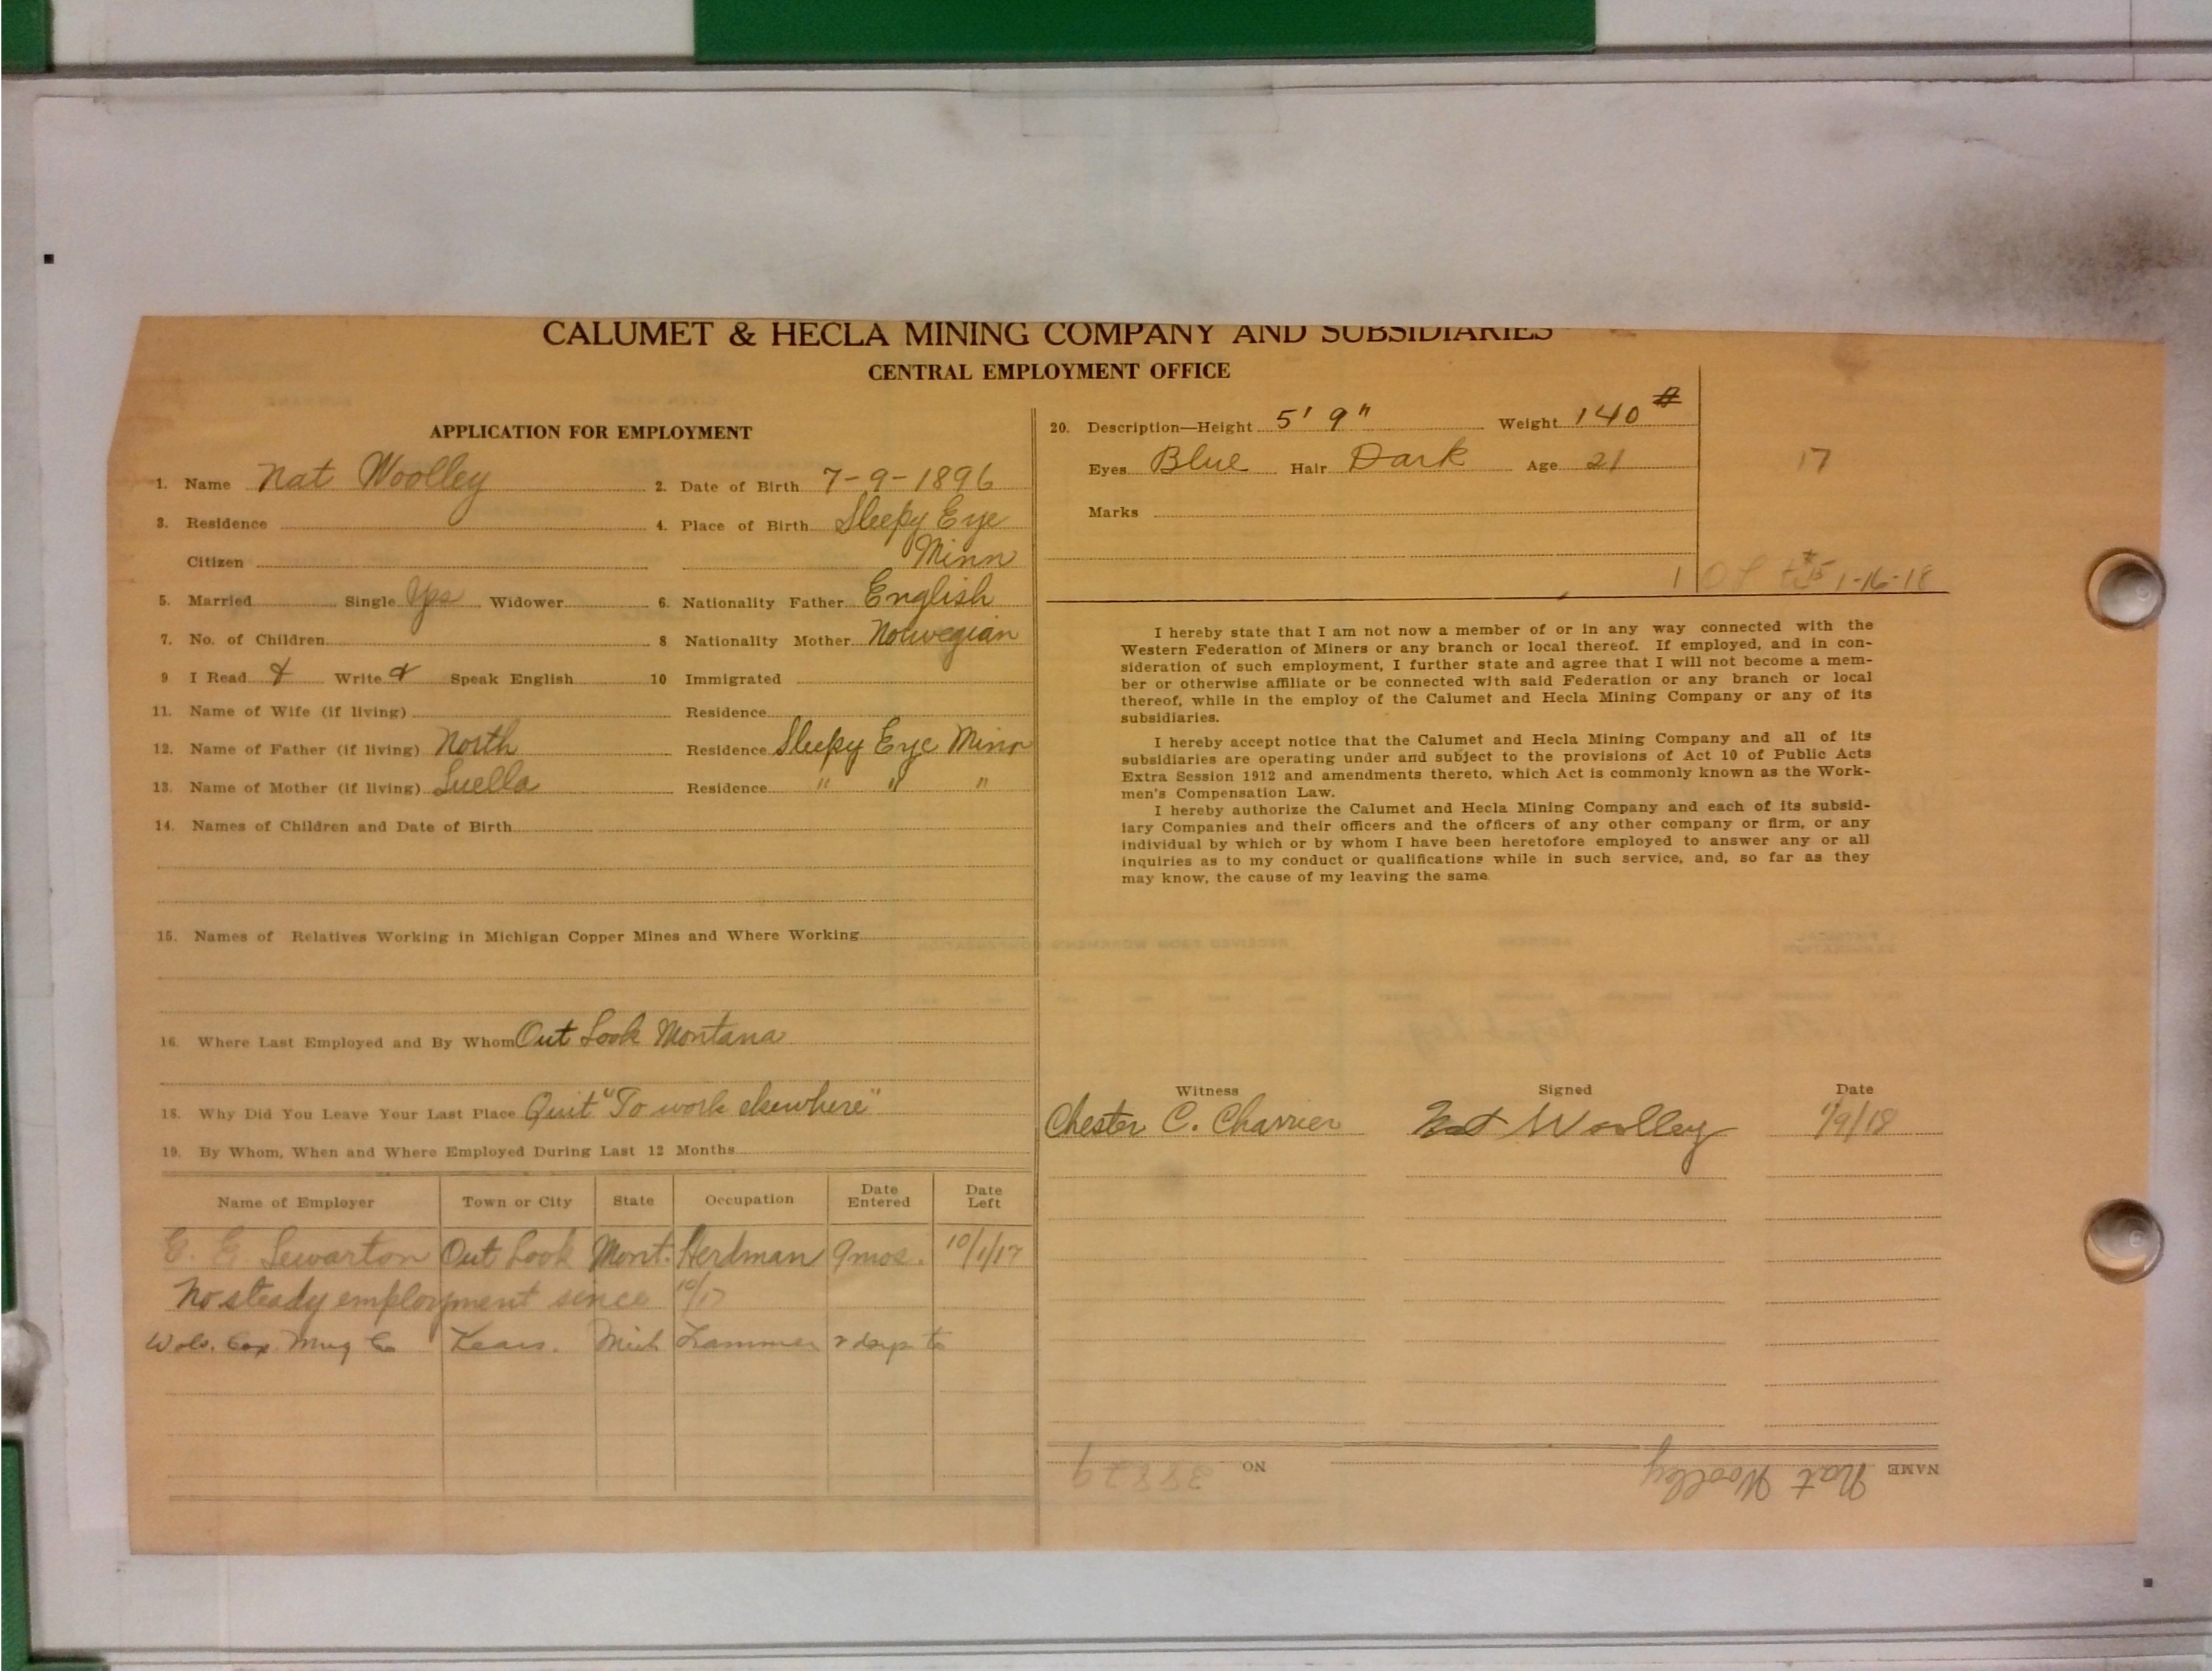 CALUMET & HECLA MINING COMPANY AND SUBSIDIARIES
CENTRAL EMPLOYMENT OFFICE
APPLICATION FOR EMPLOYMENT
1. Name Nat Woolley 2. Date of Birth 7-9-1896
3. Residence 4. Place of Birth Sleepy Eye
Citizen Minn
5. Married Single Yes Widower 6. Nationality Father English
7. No. of Children 8 Nationality Mother Norwegian
9 I Read Write Speak English 10 Immigrated
11. Name of Wife (if living) Residence
12. Name of Father (if living) North Residence Sleepy Eye Minn
13. Name of Mother (if living) Luella Residence " " "
14. Names of Children and Date of Birth
15. Names of Relatives Working in Michigan Copper Mines and Where Working
16. Where Last Employed and By Whom Out Look Montana
18. Why Did You Leave Your Last Place Quit "To work elsewhere"
19. By Whom, When and Where Employed During Last 12 Months
Name of Employer Town or City State Occupation Date Entered Date Left
E. E. Out Look Mont. Herdman 9mos. 10/1/17
No steady employment since 10/17
Mich 2 days
20. Description—Height 5' 9" Weight 140 #
Eyes Blue Hair Dark Age 21
17
Marks
1 1-16-18
I hereby state that I am not now a member of or in any way connected with the
Western Federation of Miners or any branch or local thereof. If employed, and in con-
sideration of such employment, I further state and agree that I will not become a mem-
ber or otherwise affiliate or be connected with said Federation or any branch or local
thereof, while in the employ of the Calumet and Hecla Mining Company or any of its
subsidiaries.
I hereby accept notice that the Calumet and Hecla Mining Company and all of its
subsidiaries are operating under and subject to the provisions of Act 10 of Public Acts
Extra Session 1912 and amendments thereto, which Act is commonly known as the Work-
men's Compensation Law.
I hereby authorize the Calumet and Hecla Mining Company and each of its subsid-
iary Companies and their officers and the officers of any other company or firm, or any
individual by which or by whom I have been heretofore employed to answer any or all
inquiries as to my conduct or qualifications while in such service, and, so far as they
may know, the cause of my leaving the same
Witness Signed Date
Chester C. Charrier Nat Woolley 1/9/18
NAME Nat Woolley NO 38879